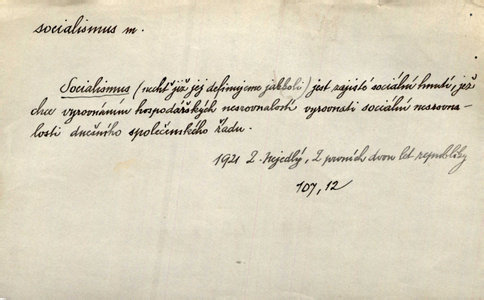 socialismus m.
Socialismus (nechť již jej definujeme jakkoli) jest zajisté sociální hnutí, jež
chce vyrovnáním hospodářských nesrovnalostí vyrovnati sociální nesrovna-
losti dnešního společenského řádu.
1921 Z. Nejedlý, Z prvních dvou let republiky
107, 12